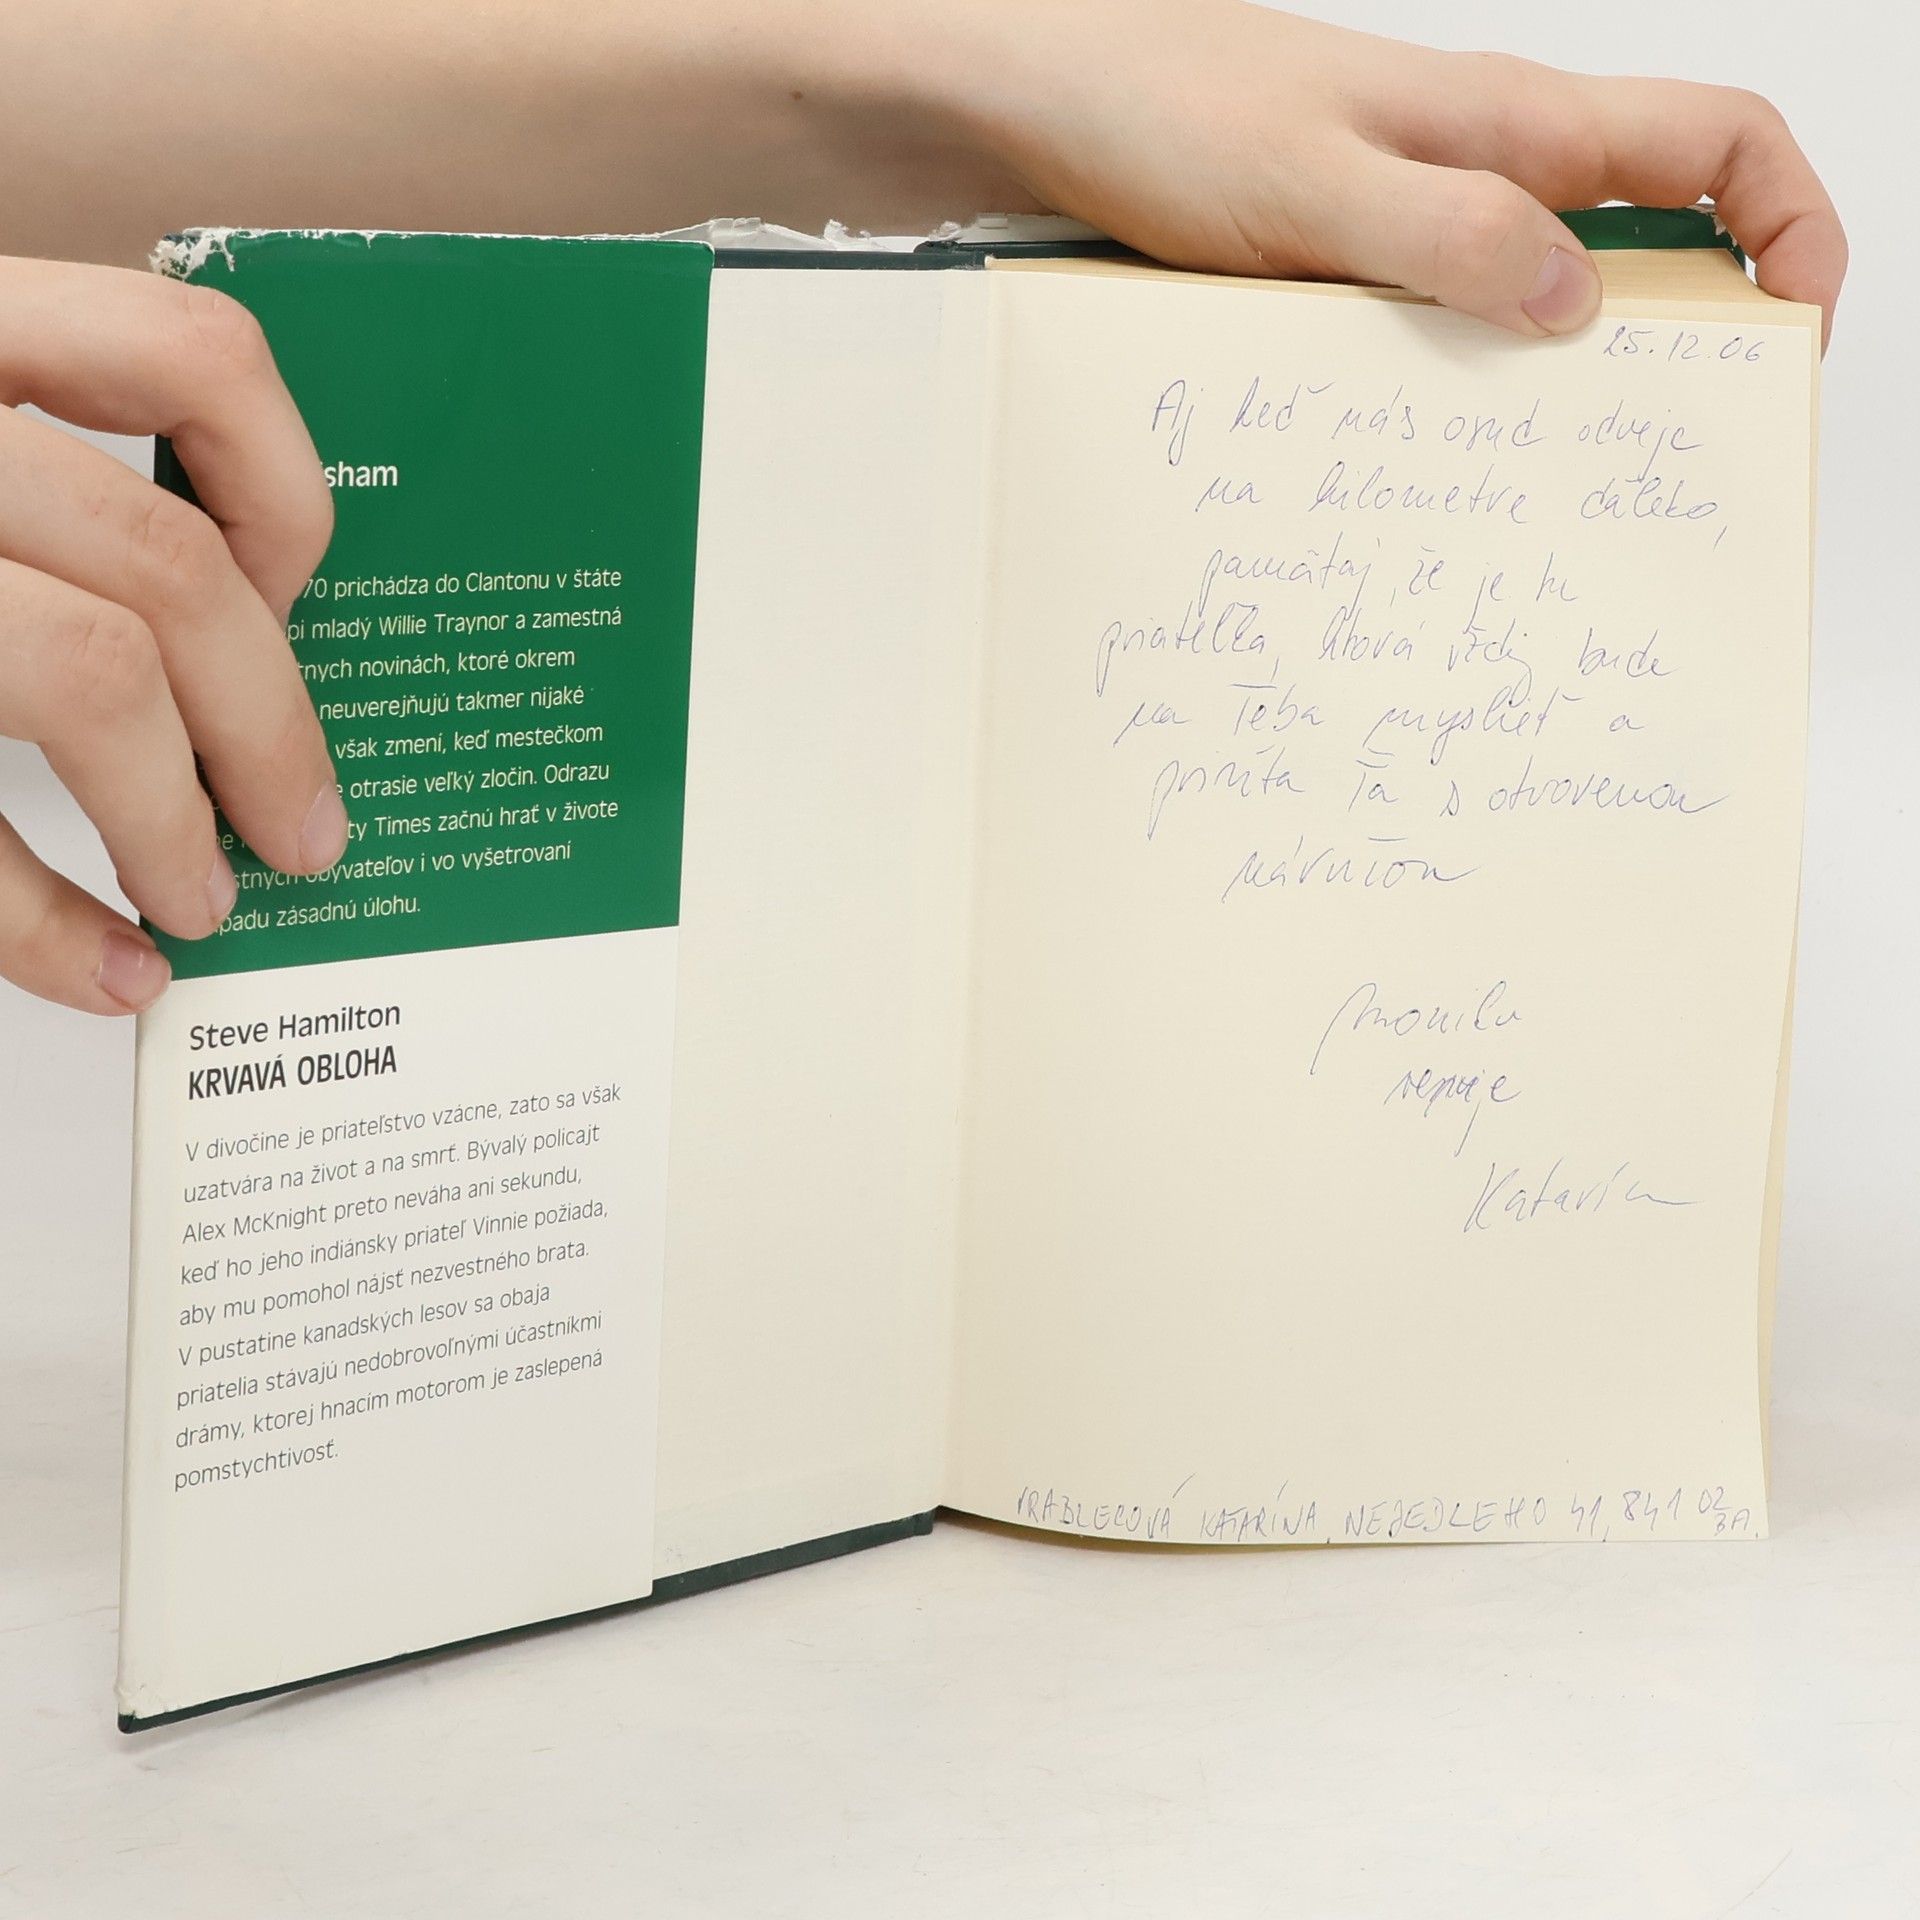 sham
70 prichádza do Clantonu v štáte
pi mladý Willie Traynor a zamestná
tnych novinách, ktoré okrem
neuverejňujú takmer nijaké
však zmení, keď mestečkom
e otrasie veľký zločin. Odrazu
ty Times začnú hrať v živote
stnych obyvateľov i vo vyšetrovaní
padu zásadnú úlohu.
Steve Hamilton
KRVAVÁ OBLOHA
V divočine je priateľstvo vzácne, zato sa však
uzatvára na život a na smrť. Bývalý policajt
Alex McKnight preto neváha ani sekundu,
keď ho jeho indiánsky priateľ Vinnie požiada,
aby mu pomohol nájsť nezvestného brata.
V pustatine kanadských lesov sa obaja
priatelia stávajú nedobrovoľnými účastníkmi
drámy, ktorej hnacím motorom je zaslepená
pomstychtivosť.
25.12.06
Aj keď nás osud odveje
na kilometre ďaleko,
pamätaj, že je tu
priateľka, ktorá vždy bude
na Teba myslieť a
privíta Ťa s otvorenou
náručou
Monika
venuje
Katarína
VRABLECOVÁ KATARÍNA, NEJEDLEHO 41, 841 02 BA.